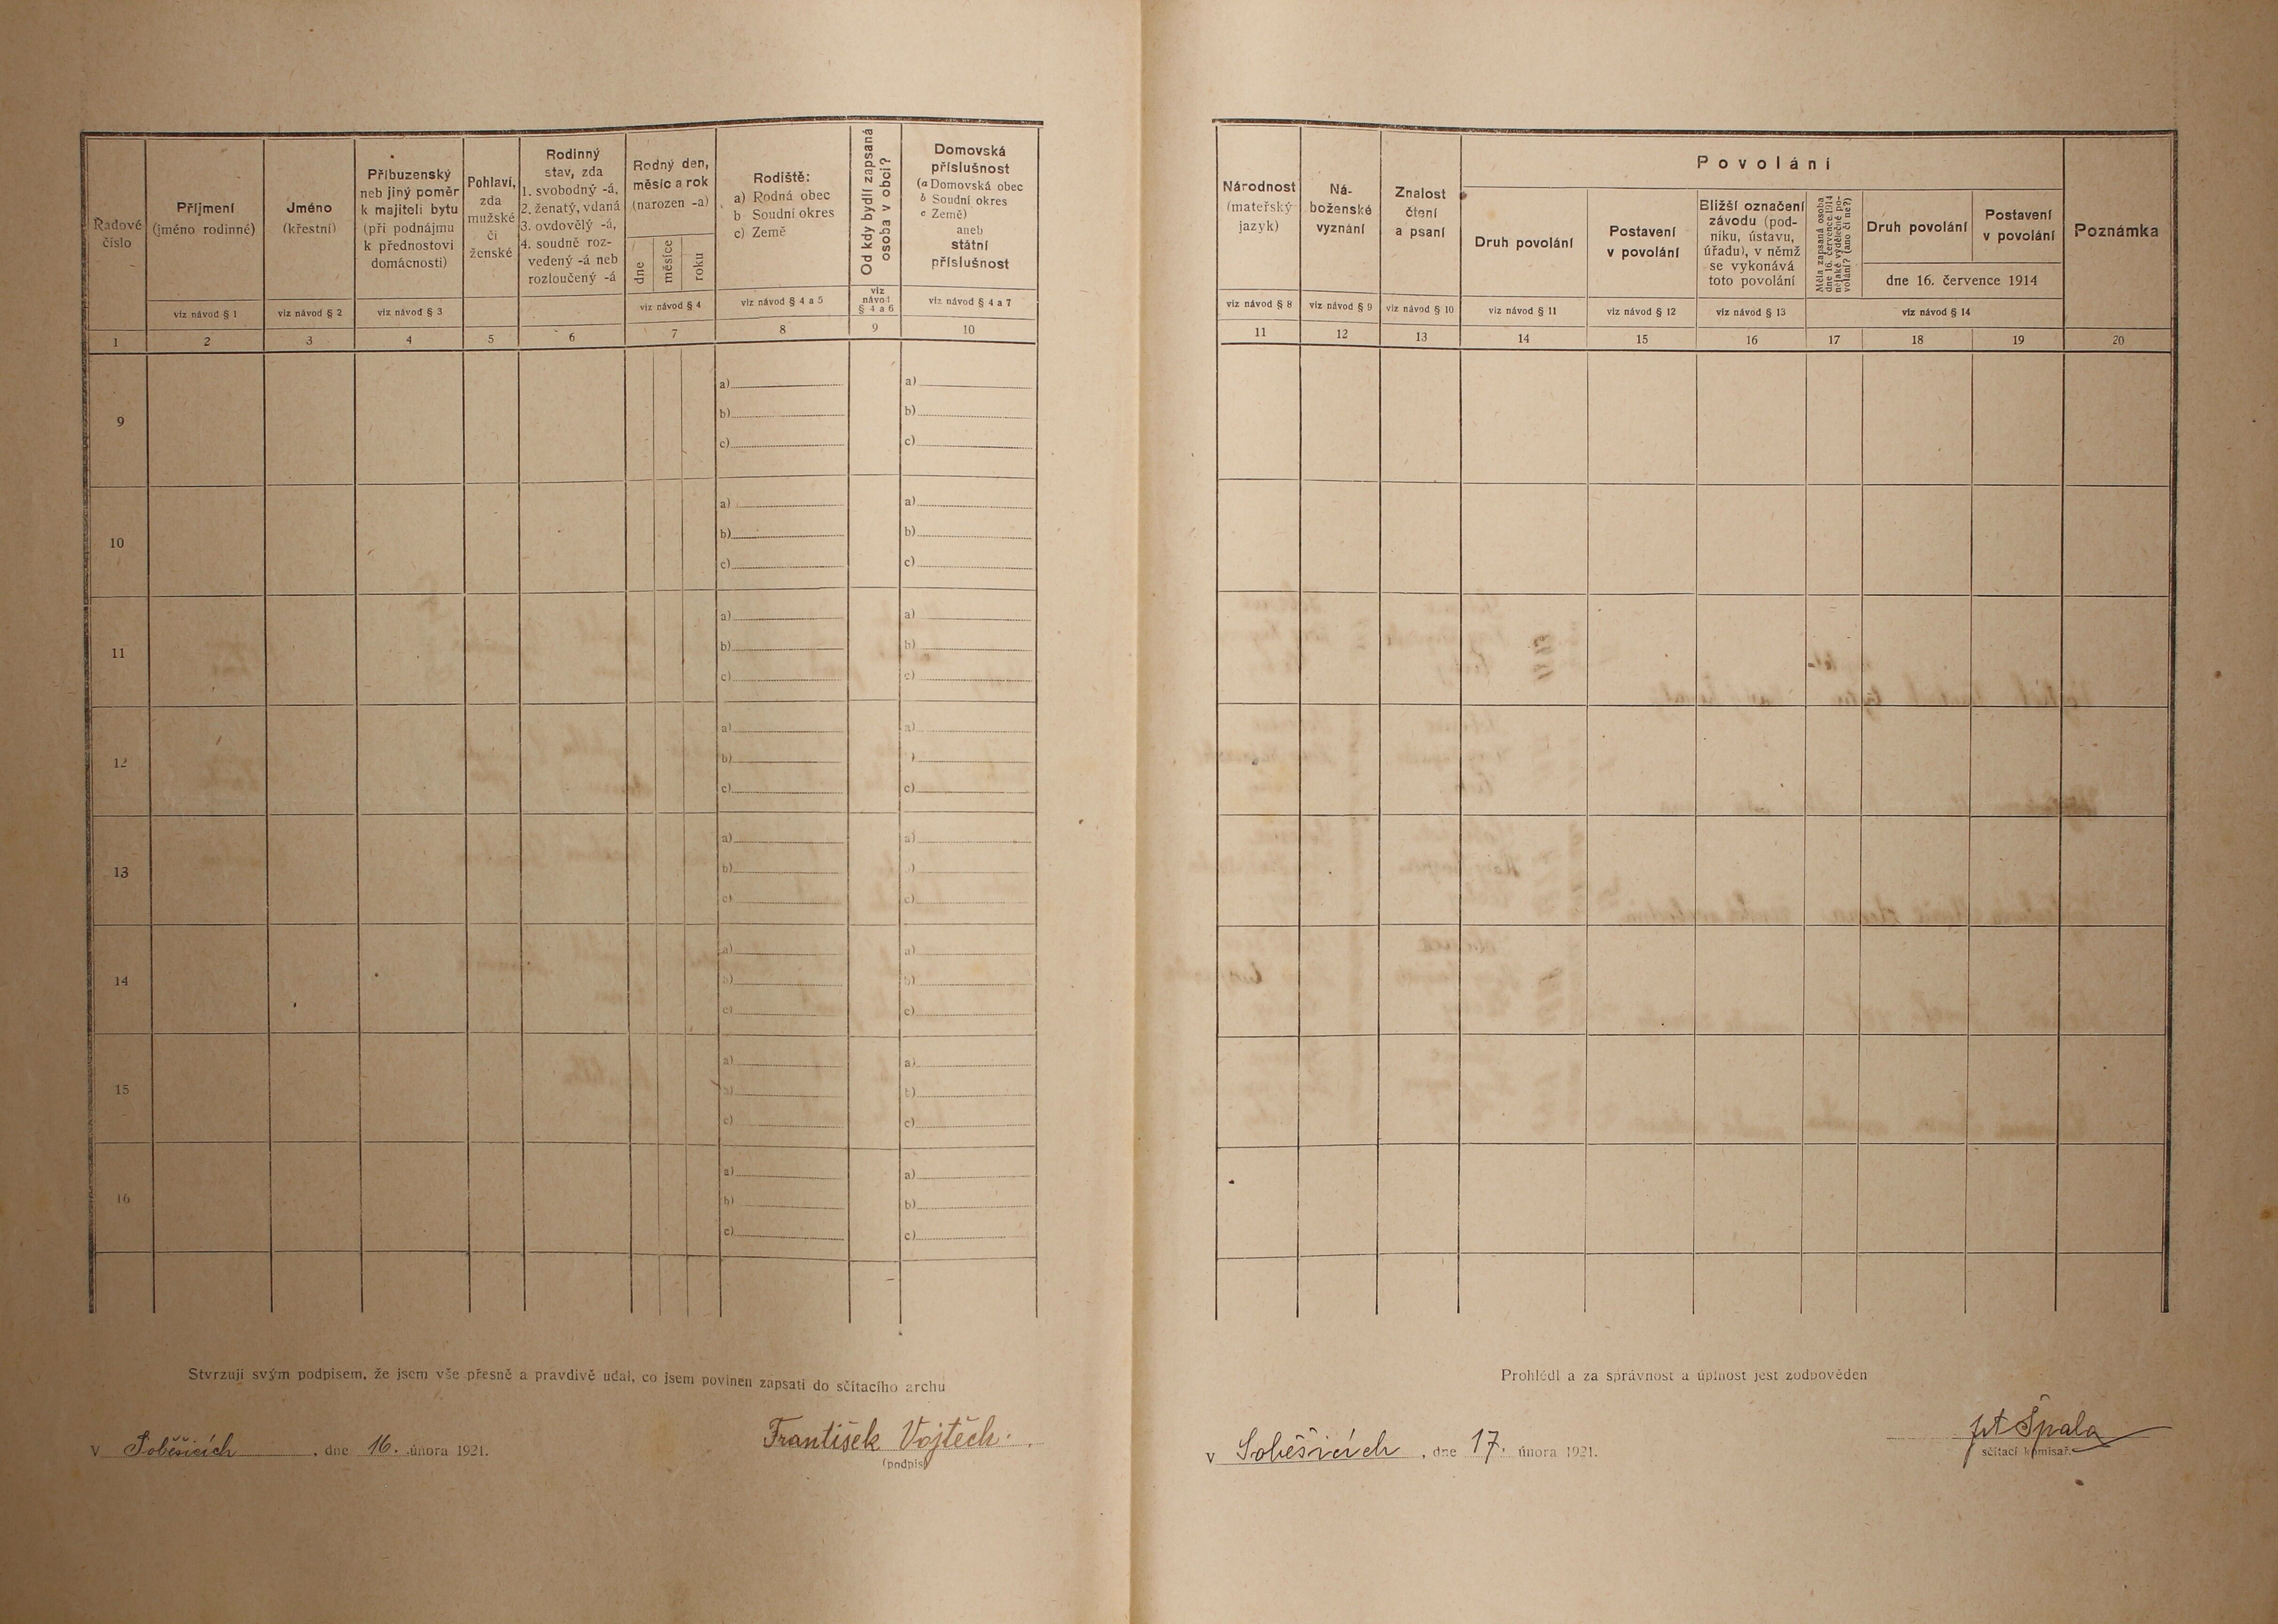 Řadové
číslo
Příjmení
(jméno rodinné)
viz návod § 1
Jméno
(křestní)
viz návod § 2
Příbuzenský
neb jiný poměr
k majiteli bytu
(při podnájmu
k přednostovi
domácnosti)
viz návod § 3
Pohlaví,
zda
mužské
či
ženské
Rodinný
stav, zda
1. svobodný -á,
2. ženatý, vdaná
3. ovdovělý -á,
4. soudně roz-
vedený -á neb
rozloučený -á
Rodný den,
měsíc a rok
(narozen -a)
dne
měsíce
roku
viz návod § 4
Rodiště:
a) Rodná obec
b Soudní okres
c) Země
viz návod § 4 a 5
Od kdy bydlí zapsaná
osoba v obci?
viz
návod
§ 4 a 6
Domovská
příslušnost
(a Domovská obec
b Soudní okres
c Země)
aneb
státní
příslušnost
viz návod § 4 a 7
1 2 3 4 5 6 7 8 9 10
9
a) a)
b) b)
c) c)
10
a) a)
b) b)
c) c)
11
a) a)
b) b)
c) c)
12
a) a)
b) )
c) c)
13
a) a)
b) )
c) c)
14
a) a)
b) b)
c) c)
15
a) a)
b) b)
c) c)
16
a) a)
b) b)
c) c)
Stvrzuji svým podpisem, že jsem vše přesně a pravdivě udal, co jsem povinen zapsati do sčítacího archu
V Soběšicích, dne 16. února 1921.
František Vojtěch.
(podpis)
Národnost
(mateřský
jazyk)
viz návod § 8
Ná-
boženské
vyznání
viz návod § 9
Znalost
čtení
a psaní
viz návod § 10
Povolání
Druh povolání
viz návod § 11
Postavení
v povolání
viz návod § 12
Bližší označení
závodu (pod-
niku, ústavu,
úřadu), v němž
se vykonává
toto povolání
viz návod § 13
Měla zapsaná osoba
dne 16. července 1914
nějaké výdělečné po-
volání? (ano či ne?)
Druh povolání
Postavení
v povolání
dne 16. července 1914
viz návod § 14
Poznámka
11 12 13 14 15 16 17 18 19 20
Prohlédl a za správnost a úplnost jest zodpověden
V Soběšicích, dne 17. února 1921.
Špala
sčítací komisař.